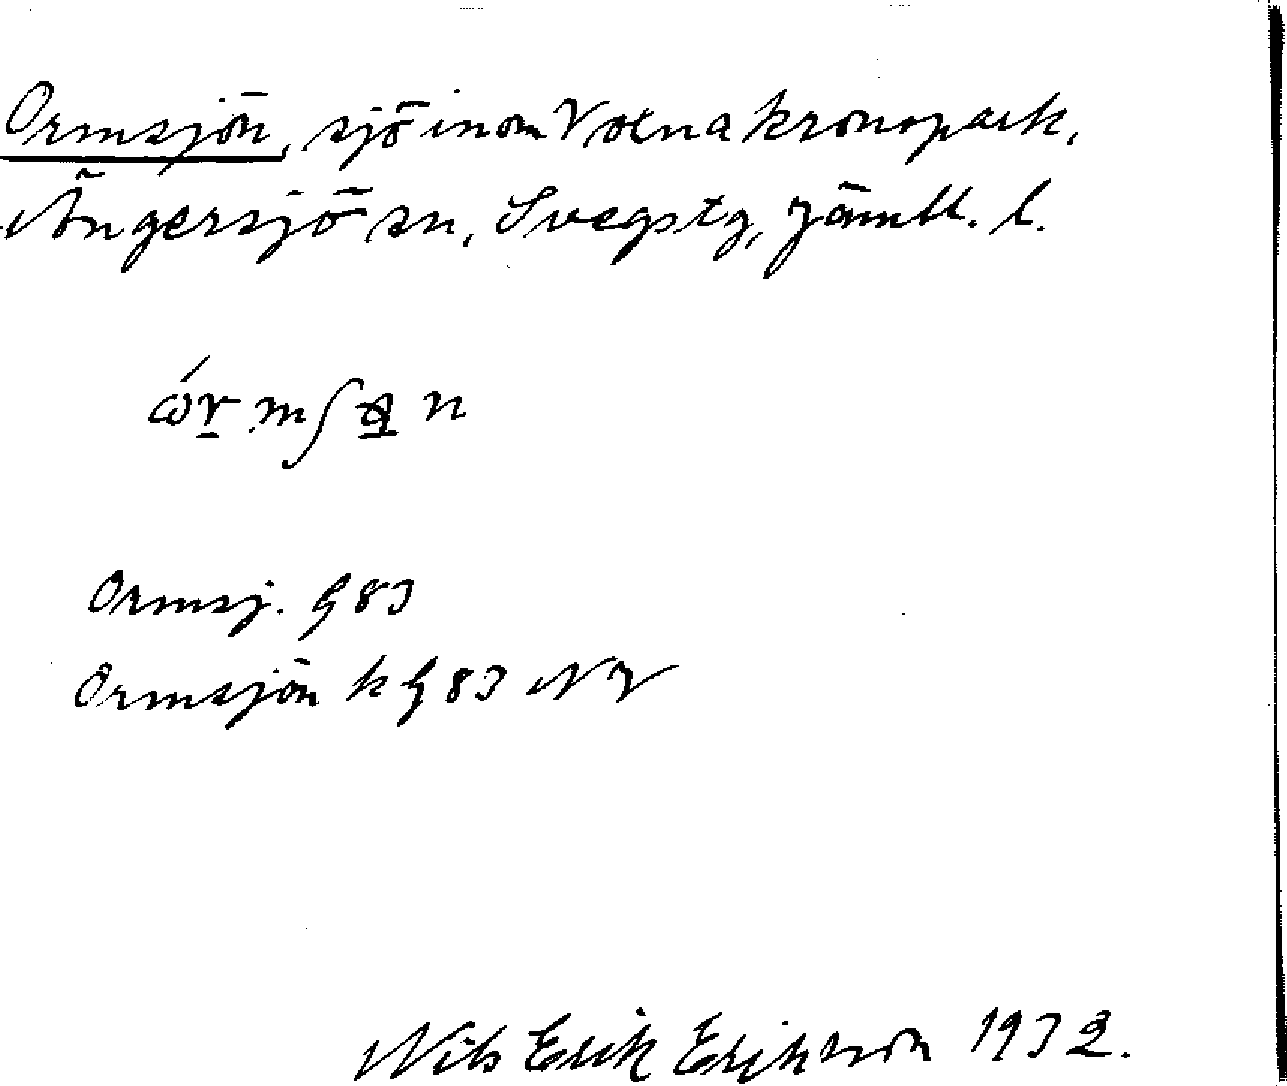 Ormsjön, sjö inom Voxna kronopark,
Ängersjö sn, Svegs tg, Jämtl. l.
Ormsj. G 83
Ormsjön k G 83 NV
Nils Erik Eriksson 1932.